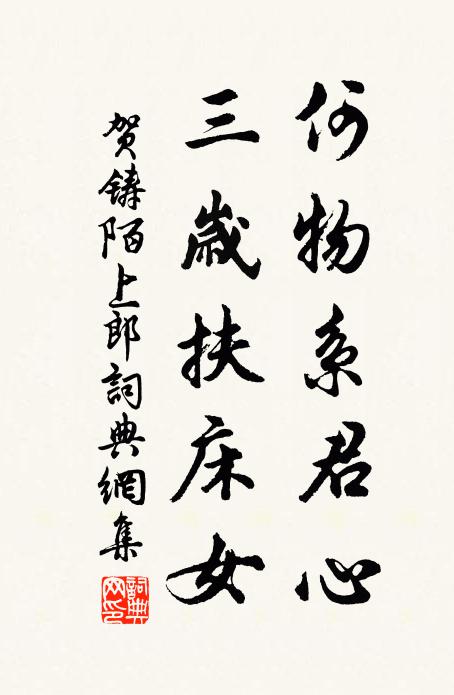 何物系君心
三歲扶床女
贺鋳陌上郎詞典網集
詞典
网印